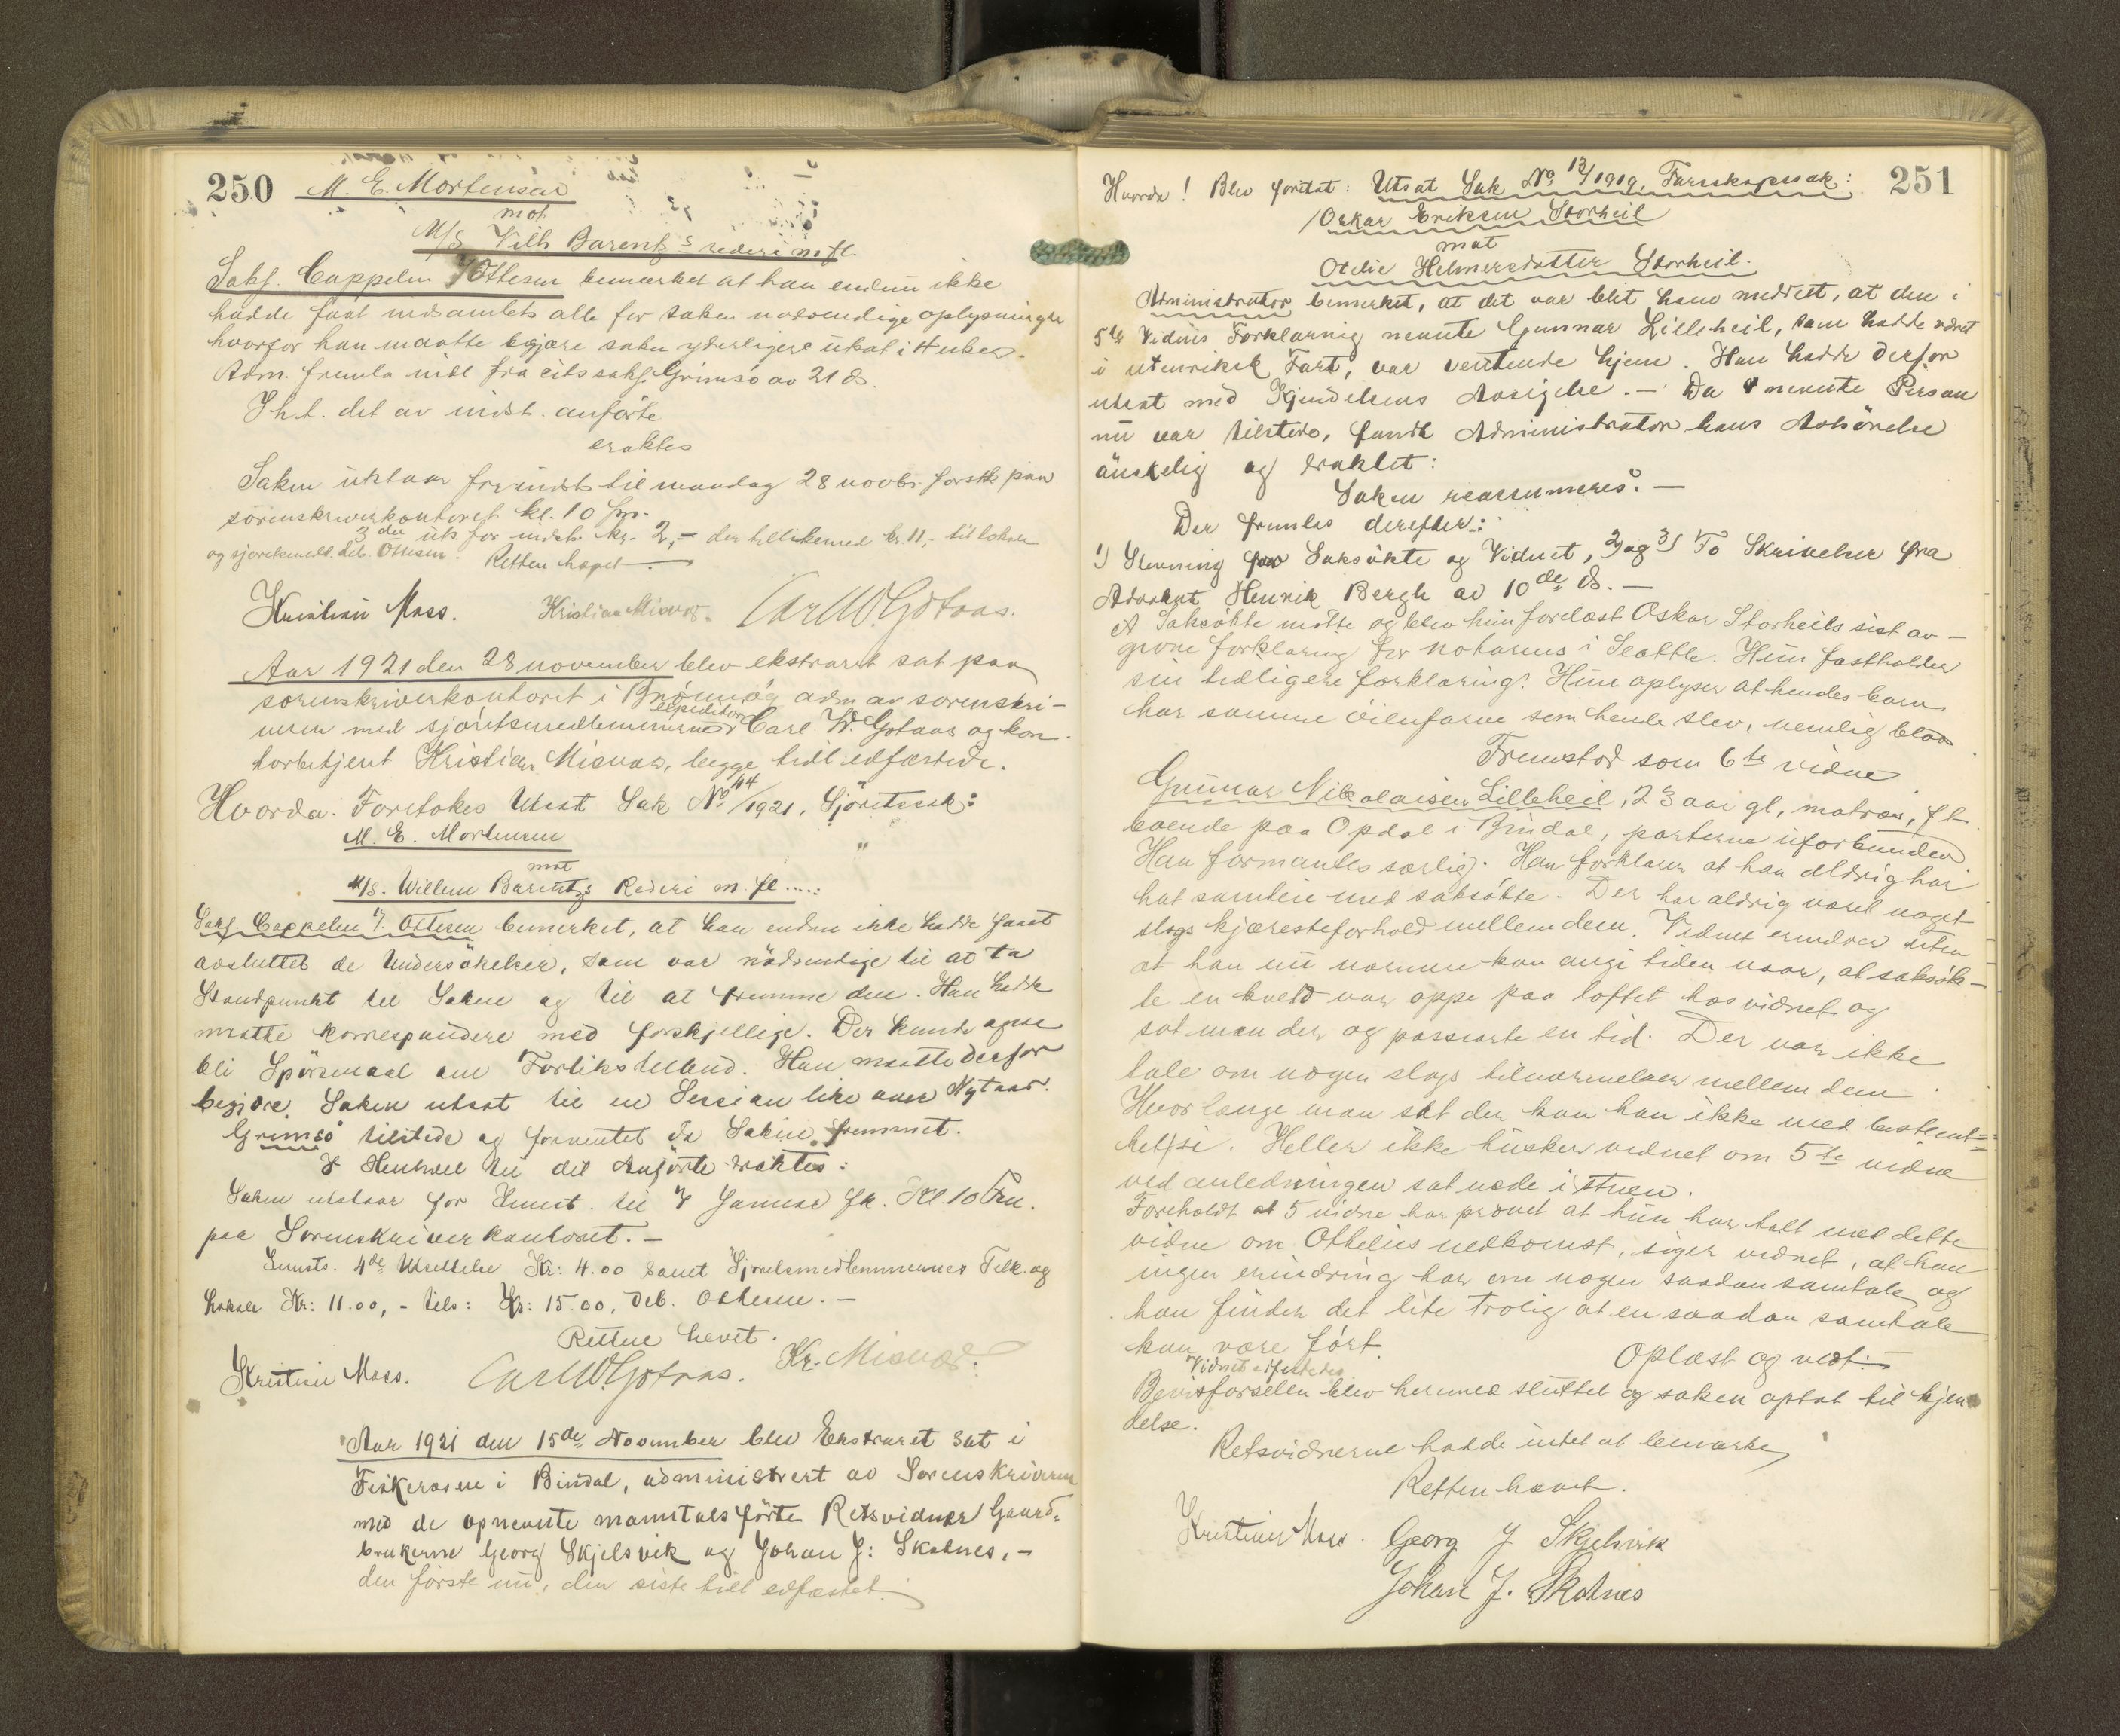 250 M. E. Mortensen
mot
M/S Vilh Barentz's rederi m fl.
Saksf. Cappelen f Ottesen bemærket at han endnu ikke
hadde faat indsamlet alle for saken nødvendige oplysninger
hvorfor han maatte begjære saken yderligere utsat i 4 uker.
Adm. fremla indl fra citssaksf. Grimsø av 21 ds.
I h.t. det av indst. anførte
eraktes
Saken utstaar for indst til mandag 28 novbr. förstk paa
sörenskriverkontoret kl. 10 fm.
3die uts for indst. kr. 2,- der tillikemed kr. 11,- til lokale
og sjøretsmedl. deb. Ottesen. Retten hævet —
Kristian Moss. Kristian Misvær. Carl W. Gotaas.
Aar 1921 den 28 november blev ekstraret sat paa
sorenskriverkontoret i Brønnøy adm av sorenskri-
veren med sjøretsmedlemmerne expeditør Carl W. Gotaas og kon-
torbetjent Kristian Misvær, begge tidl edfæstede.
Hvorda: Foretokes Utsat Sak No 44/1921, Sjöretssak:
M. E. Mortensen
mot
M/S. Willem Barentz's Rederi m. fl....:
Saksf. Cappelen f. Ottesen bemerket, at han endnu ikke hadde faaet
avsluttet de Undersökelser, som var nödvendige til at ta
Standpunkt til Saken og til at fremme den. Han hadde
maatte korrespondere med forskjellige. Der kunde ogsaa
bli Spörsmaal om Forliks tilbud. Han maatte derfor
begjære Saken utsat til en Session like over Nytaar.
Grimsö tilstede og forventet da Saken fremmet.
I Henhold til det Anförte eraktes:
Saken utstaar for Indst. til 7 Januar fk. Kl. 10 Fm.
paa Sorenskriverkontoret. —
Indsts. 4de Utsettelse Kr: 4.00 samt Sjøretsmedlemmernes Tilk. og
Lokale Kr: 11.00, - tils: Kr: 15.00, Deb. Ottesen. —
Retten hevet.
Kristian Moss. Carl W. Gotaas. Kr. Misvær.
Aar 1921 den 15de November blev Ekstraret sat i
Fiskerosen i Bindal, administrert av Sorenskriveren
med de opnevnte mantalsförte Retsvidner Gaard-
brukerne Georg Skjelsvik og Johan J: Skotnes, -
den første nu, den siste tidl edfæstet.
251
Hvorda! Blev foretat: Utsat Sak No 13/1919, Farskapssak:
/Oskar Eriksen Storheil
mot
Otelie Helmersdatter Storheil.
Administrator bemerket, at det var blit ham meddelt, at den i
5te Vidnes Forklaring nevnte Gunnar Lilleheil, som hadde været
i utenriksk Fart, var ventende hjem. Han hadde derfor
utsat med Kjendelsens Avsigelse. — Da nevnte Person
nu var tilstede, fandt Administrator hans Avhörelse
önskelig og eraktet:
Saken reassumeres. —
Der fremlas derefter:
1) Stevning for Saksökte og Vidnet, 2) og 3) To Skrivelser fra
Advokat Henrik Bergh av 10de ds. —
Saksøkte møtte og blev hun forelæst Oskar Storheils sist av-
givne forklaring for notarius i Seattle. Hun fastholder
sin tidligere forklaring. Hun oplyser at hendes barn
har samme öienfarve som hende selv, nemlig blaa
Fremstod som 6te vidne
Gunnar Nikolaisen Lilleheil, 23 aar gl, matros, ft
boende paa Opdal i Bindal, parterne uforbunden
Han formantes særlig. Han forklarer at han aldrig har
hat samleie med saksøkte. Der har aldrig været noget
slags kjæresteforhold mellem dem. Vidnet erindrer uten
at han nu nærmere kan angi tiden naar, at saksøk-
te en kveld var oppe paa loftet hos vidnet og
sat man der og passiarte en tid. Der var ikke
tale om nogen slags tilnærmelser mellem dem.
Hvorlænge man sat der kan han ikke med bestemt-
het si. Heller ikke husker vidnet om 5te vidne
ved anledningen sat nede i stuen.
Foreholdt at 5 vidne har prøvet at hun har talt med dette
vidne om Othelies nedkomst, siger vidnet, at han
ingen erindring har om nogen saadan samtale og
han finder det lite trolig at en saadan samtale
kan være ført.
Oplæst og vedt. —
Vidnet edfæstedes
Bevisførselen blev hermed sluttet og saken optat til kjen-
delse.
Retsvidnerne hadde intet at bemærke
Retten hævet.
Kristian Moss. Georg J Skjelsvik
Johan J. Skotnes